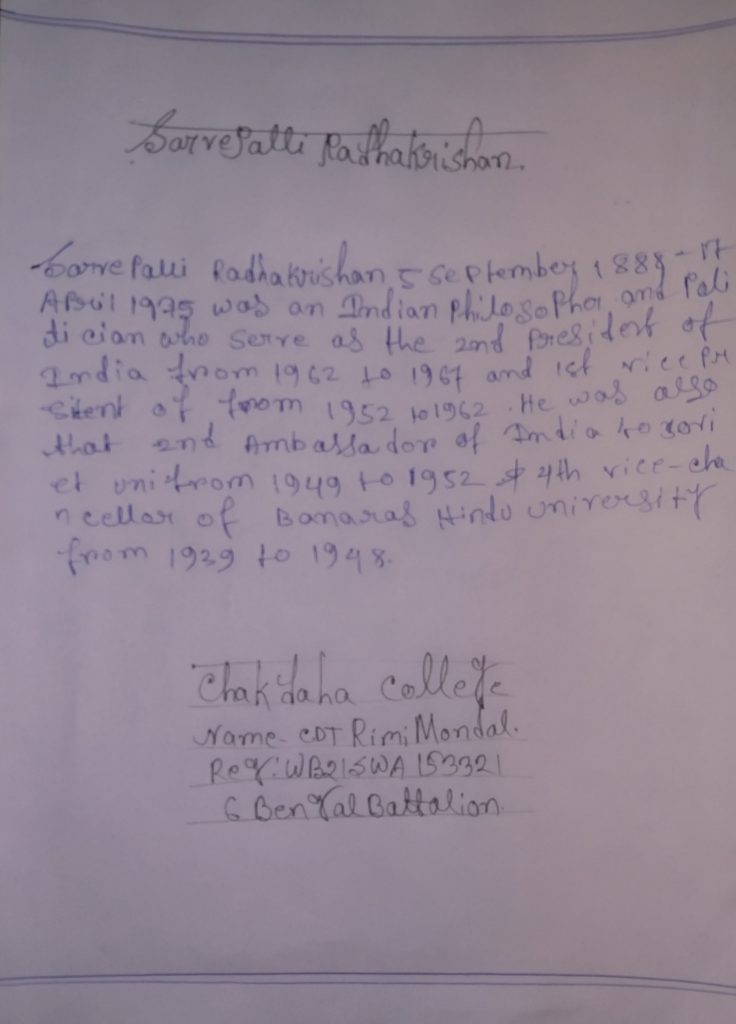 Sarvepalli Radhakrishan.
Sarvepalli Radhakrishan 5 September 1888 - 17
April 1975 was an Indian philosopher and Pali
ti cian who serve as the 2nd President of
India from 1962 to 1967 and 1st vice pre
sitent of from 1952 to 1962. He was also
that 2nd Ambassador of India to sovi
et uni from 1949 to 1952 & 4th vice-cha
ncellar of Banaras Hindu university
from 1939 to 1948.
Chakdaha College
Name - CDT Rimi Mondal.
Reg: WB21SWA153321
6 Bengal Battalion